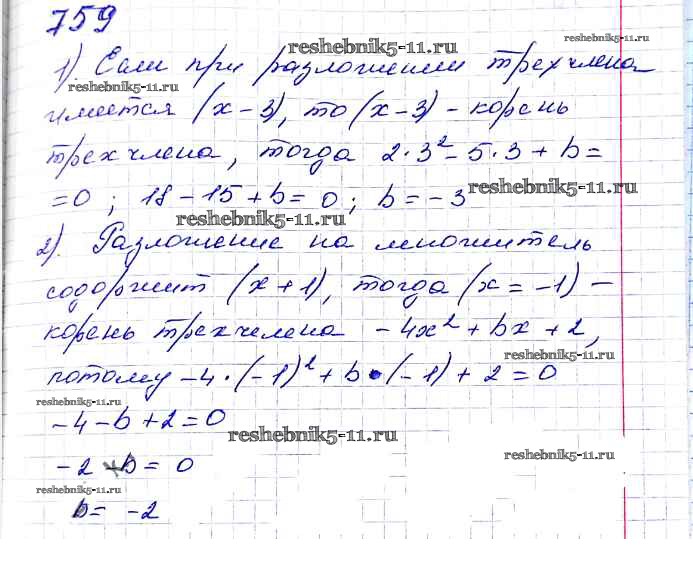 759
reshebnik5-11.ru
reshebnik5-11.ru
1). Если при разложении трехчлена
reshebnik5-11.ru
имеется (x-3), то (x-3) - корень
трехчлена, тогда 2·3² - 5·3 + b =
=0; 18 - 15 + b = 0; b = -3
reshebnik5-11.ru
reshebnik5-11.ru
2). Разложение на множитель
содержит (x+1), тогда (x = -1) -
корень трехчлена -4x² + bx + 2,
reshebnik5-11.ru
потому -4·(-1)² + b·(-1) + 2 = 0
reshebnik5-11.ru
-4 - b + 2 = 0
reshebnik5-11.ru
reshebnik5-11.ru
-2 - b = 0
reshebnik5-11.ru
b = -2